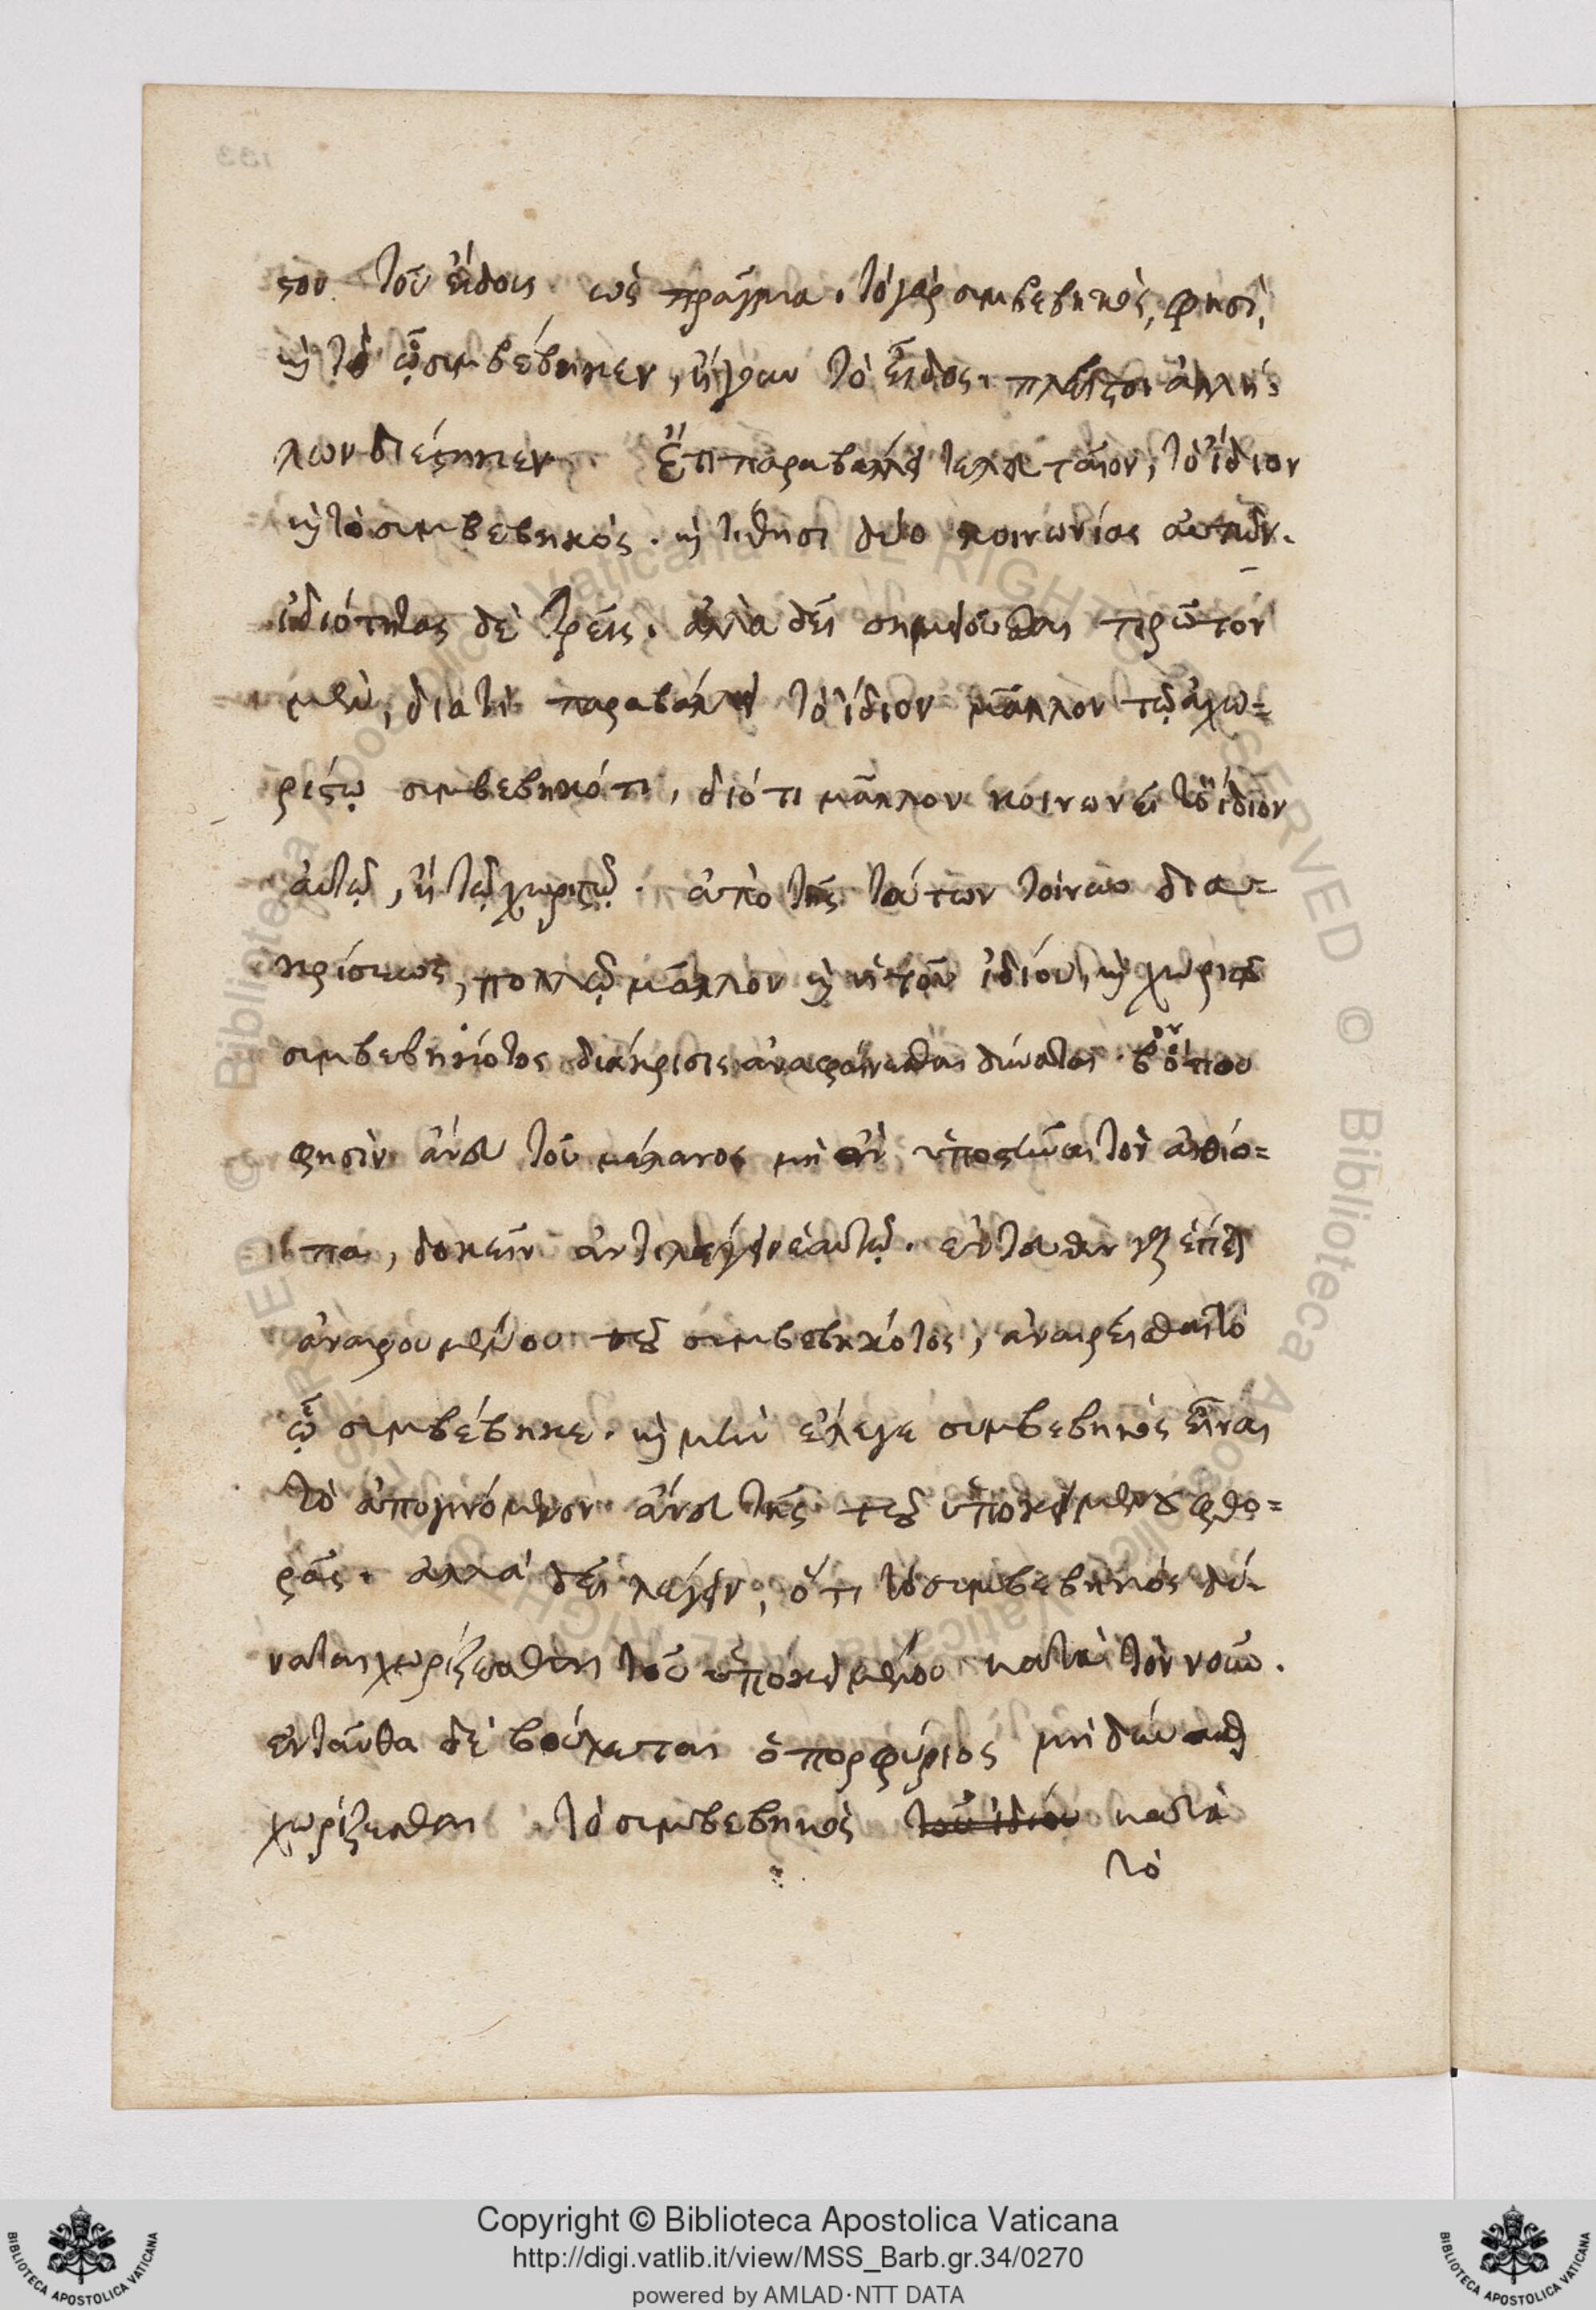 στου τοῦ εἴδους ὡς πρᾶγμα. τὸ γὰρ συμβεβηκὸς, φησὶ,
καὶ τὸ ᾧ συμβέβηκεν, ἤγουν τὸ εἶδος. πλεῖστοι ἀλλή-
λων διέστηκεν. Ἔτι παραβάλλει τελευταῖον, τὸ ἴδιον
καὶ τὸ συμβεβηκός. καὶ τίθησι δύο κοινωνίας αὐτῶν.
ἰδιότητας δὲ τρεῖς. ἀλλὰ δεῖ σημειοῦσθαι πρῶτον
μὲν, διατί παραβάλλει τὸ ἴδιον μᾶλλον τῷ ἀχω-
ρίστῳ συμβεβηκότι, διότι μᾶλλον κοινωνεῖ τὸ ἴδιον
αὐτῷ, ἢ τῷ χωριστῷ. ἀπὸ τῆς τούτων τοίνυν δια-
κρίσεως, πολλῷ μᾶλλον καὶ ἡ τοῦ ἰδίου, καὶ χωριστοῦ
συμβεβηκότος διάκρισις ἀναφαίνεσθαι δύναται. βον ὅπου
φησὶν ἄνευ τοῦ μέλανος μὴ ἂν ὑποστῆναι τὸν αἰθίο-
πα, δοκεῖν ἀντιλέγειν ἑαυτῷ. ἐντεῦθεν γὰρ ἕπεται
ἀναιρουμένου τοῦ συμβεβηκότος, ἀναιρεῖσθαι τὸ
ᾧ συμβέβηκε. καὶ μὴν ἔλεγε συμβεβηκὸς εἶναι
τὸ ἀπογινόμενον ἄνευ τῆς τοῦ ὑποκειμένου φθο-
ρᾶς. ἀλλὰ δεῖ λέγειν, ὅτι τὸ συμβεβηκὸς δύ-
ναται χωρίζεσθαι τοῦ ὑποκειμένου κατὰ τὸν νοῦν.
ἐνταῦθα δὲ βούλεται ὁ πορφύριος μὴ δύνασθαι
χωρίζεσθαι τὸ συμβεβηκὸς τοῦ ἰδίου κατὰ
τὸ
Copyright © Biblioteca Apostolica Vaticana
http://digi.vatlib.it/view/MSS_Barb.gr.34/0270
powered by AMLAD·NTT DATA